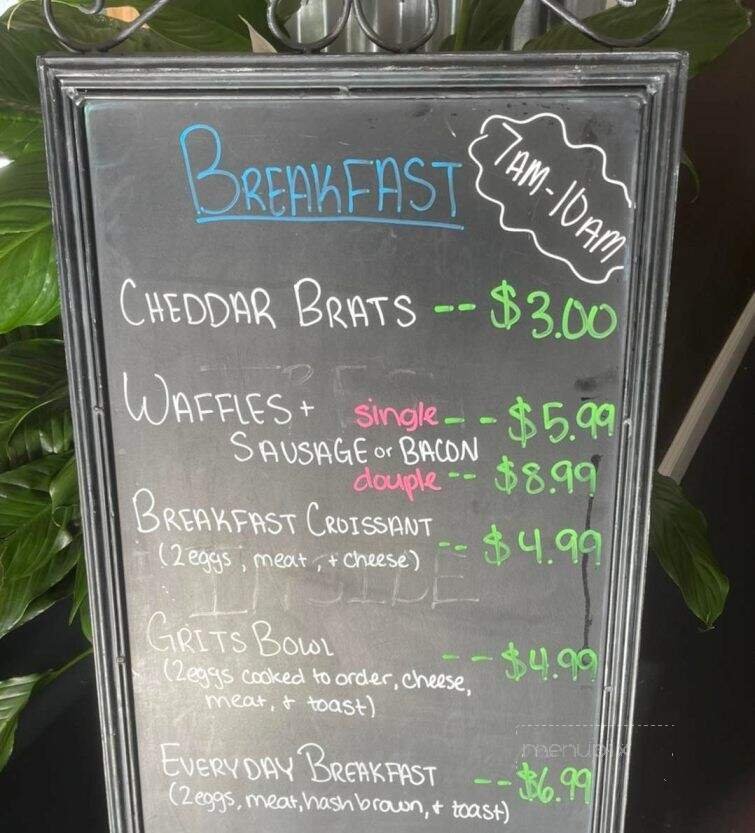 BREAKFAST
7AM-10AM
CHEDDAR BRATS -- $3.00
WAFFLES + single -- $5.99
SAUSAGE or BACON
douple -- $8.99
BREAKFAST CROISSANT
(2eggs, meat, + cheese) -- $4.99
GRITS BOWL
(2eggs cooked to order, cheese, -- $4.99
meat, + toast)
EVERYDAY BREAKFAST -- $6.99
(2eggs, meat, hashbrown, + toast)
INSIDE
menupix